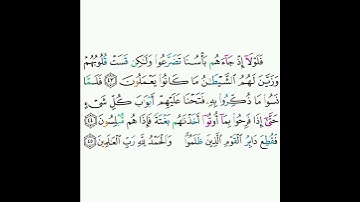 فَلَوْلَآ إِذْ جَآءَهُم بَأْسُنَا تَضَرَّعُوا۟ وَلَٰكِن قَسَتْ قُلُوبُهُمْ
وَزَيَّنَ لَهُمُ ٱلشَّيْطَٰنُ مَا كَانُوا۟ يَعْمَلُونَ ٤٣ فَلَمَّا
نَسُوا۟ مَا ذُكِّرُوا۟ بِهِۦ فَتَحْنَا عَلَيْهِمْ أَبْوَٰبَ كُلِّ شَىْءٍ
حَتَّىٰٓ إِذَا فَرِحُوا۟ بِمَآ أُوتُوٓا۟ أَخَذْنَٰهُم بَغْتَةً فَإِذَا هُم مُّبْلِسُونَ ٤٤
فَقُطِعَ دَابِرُ ٱلْقَوْمِ ٱلَّذِينَ ظَلَمُوا۟ وَٱلْحَمْدُ لِلَّهِ رَبِّ ٱلْعَٰلَمِينَ ٤٥